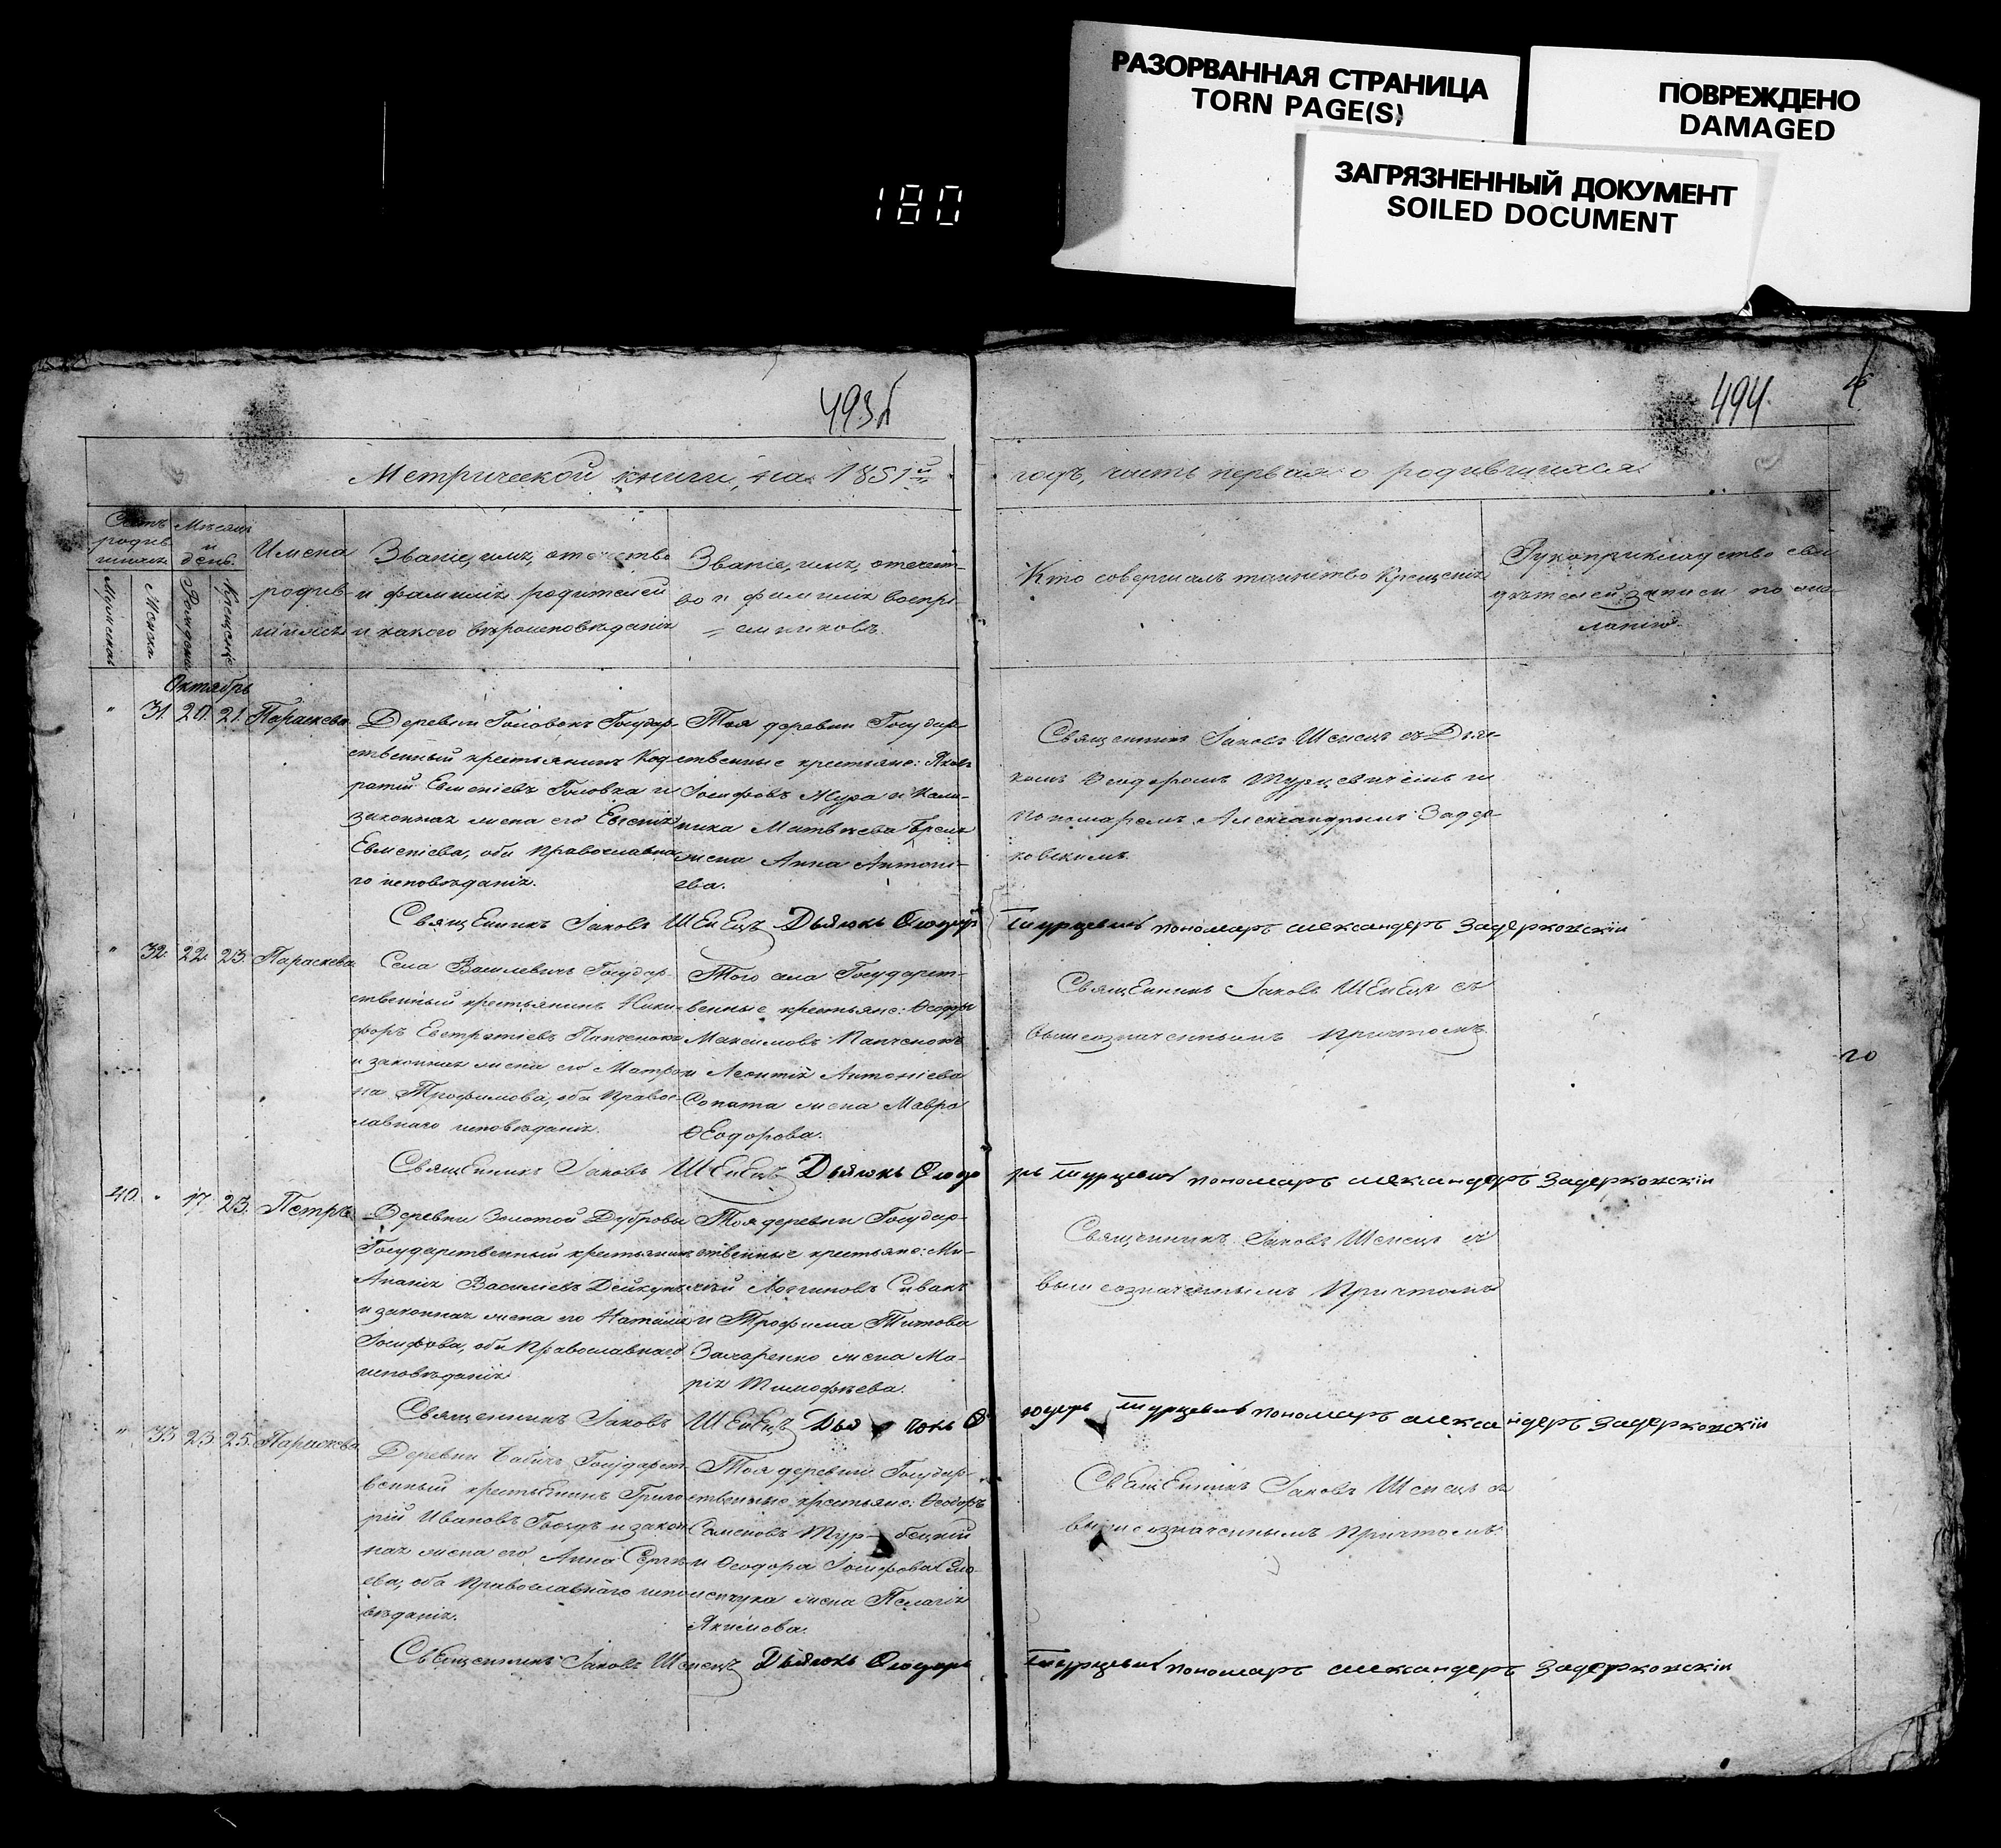 РАЗОРВАННАЯ СТРАНИЦА
TORN PAGE(S)
ПОВРЕЖДЕНО
DAMAGED
ЗАГРЯЗНЕННЫЙ ДОКУМЕНТ
SOILED DOCUMENT
180
493б
494.
Метрической книги, на 1851й
годъ, часть первая о родившихся.
Счетъ родив-шихся
Мужеска
Женска
Мѣсяцъ и день.
Рожденія
Крещенія
Имена
родив-
шихся
Званіе, имя, отчество
и фамилія родителей
и какого вѣроисповѣданія
Званіе, имя, отчест-
во и фамилія воспрі-
емниковъ.
Кто совершалъ таинство Крещенія
Рукоприкладство сви
дѣтелей записи по же-
ланію.
Октябрь
" 31. 20. 21. Параскева
Деревни Головокъ Государ-
ственный крестьянинъ Код-
ратій Евменіевъ Головка и
законная жена его Евгенія
Евменіева, оба Православна
го исповѣданія.
Тоя деревни Государ
ственные крестьяне: Яковъ
Іосифовъ Жура и Кали-
ника Матвѣева
жена Анна Антоні-
ева.
Священникъ Іаковъ Шенецъ съ Дья-
комъ Ѳеодоромъ Турцевичемъ и
пономаремъ Александромъ Задер-
ковскимъ.
Священникъ Іаковъ Шенецъ Дьячокъ Ѳеодоръ Турцевичъ пономаръ александеръ Задерковскій
" 32. 22. 23. Параскева
Села Василевичъ Государ-
ственный крестьянинъ Ники-
форъ Евстратіевъ Папченокъ
и законная жена его Матро
на Трофимова, оба Правос-
лавнаго исповѣданія.
Того села Государст-
венные крестьяне: Ѳеодоръ
Максимовъ Папченокъ
и Леонтія Антоніева
Сопота жена Мавра
Ѳеодорова.
Священникъ Іаковъ Шенецъ съ
вышеозначеннымъ Причтомъ
20
Священникъ Іаковъ Шенецъ Дьячокъ Ѳеодоръ Турцевичъ пономаръ александеръ Задерковскій
40. " 17. 23. Петръ
Деревни Золотой Дубровы
Государственный крестьянинъ
Ананія Василіевъ Дейкунъ
и законная жена его Наталія
Іосифова, оба Православнаго
исповѣданія
Тоя деревни Государ-
ственные крестьяне: Ми-
хѣй Логгиновъ Сивакъ
и Трофима Титова
Захаренко жена Ма-
рія Тимофѣева.
Священникъ Іаковъ Шенецъ съ
вышеозначеннымъ Причтомъ
Священникъ Іаковъ Шенецъ Дьячокъ Ѳеодоръ Турцевичъ пономаръ александеръ Задерковскій
" 33 23. 25. Параскева
Деревни Бабичъ Государст
венный крестьянинъ Григо
рій Ивановъ Гвоздъ и закон
ная жена его Анна Сергѣ
ева, оба Православнаго испо
вѣданія.
Тоя деревни Государ-
ственные крестьяне: Ѳеодоръ
Семеновъ
и Ѳеодора Іосифова
жена Пелагія
Якимова.
Священникъ Іаковъ Шенецъ съ
вышеозначеннымъ Причтомъ.
Священникъ Іаковъ Шенецъ Дьячокъ Ѳеодоръ Турцевичъ пономаръ александеръ Задерковскій